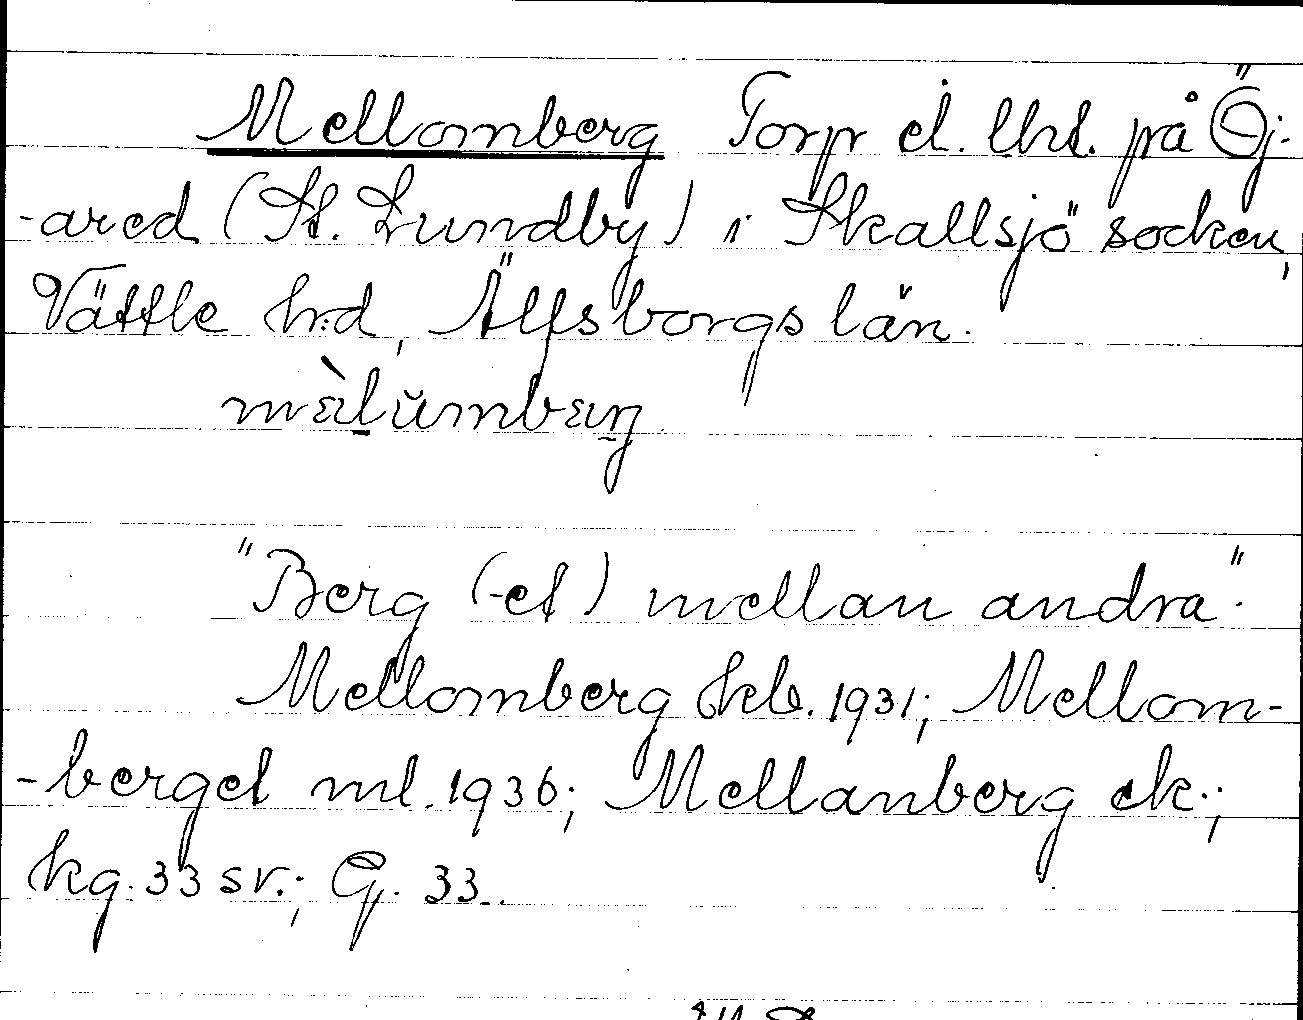 Mellomberg Torp el. lht. på Öj-
-ared (St. Lundby) i Skallsjö socken,
Vättle hrd, Älfsborgs län.
"Berg (-et) mellan andra".
Mellomberg Skb. 1931; Mellom-
-berget ml. 1936; Mellanberg ek.;
kg. 33 sv.; G. 33.